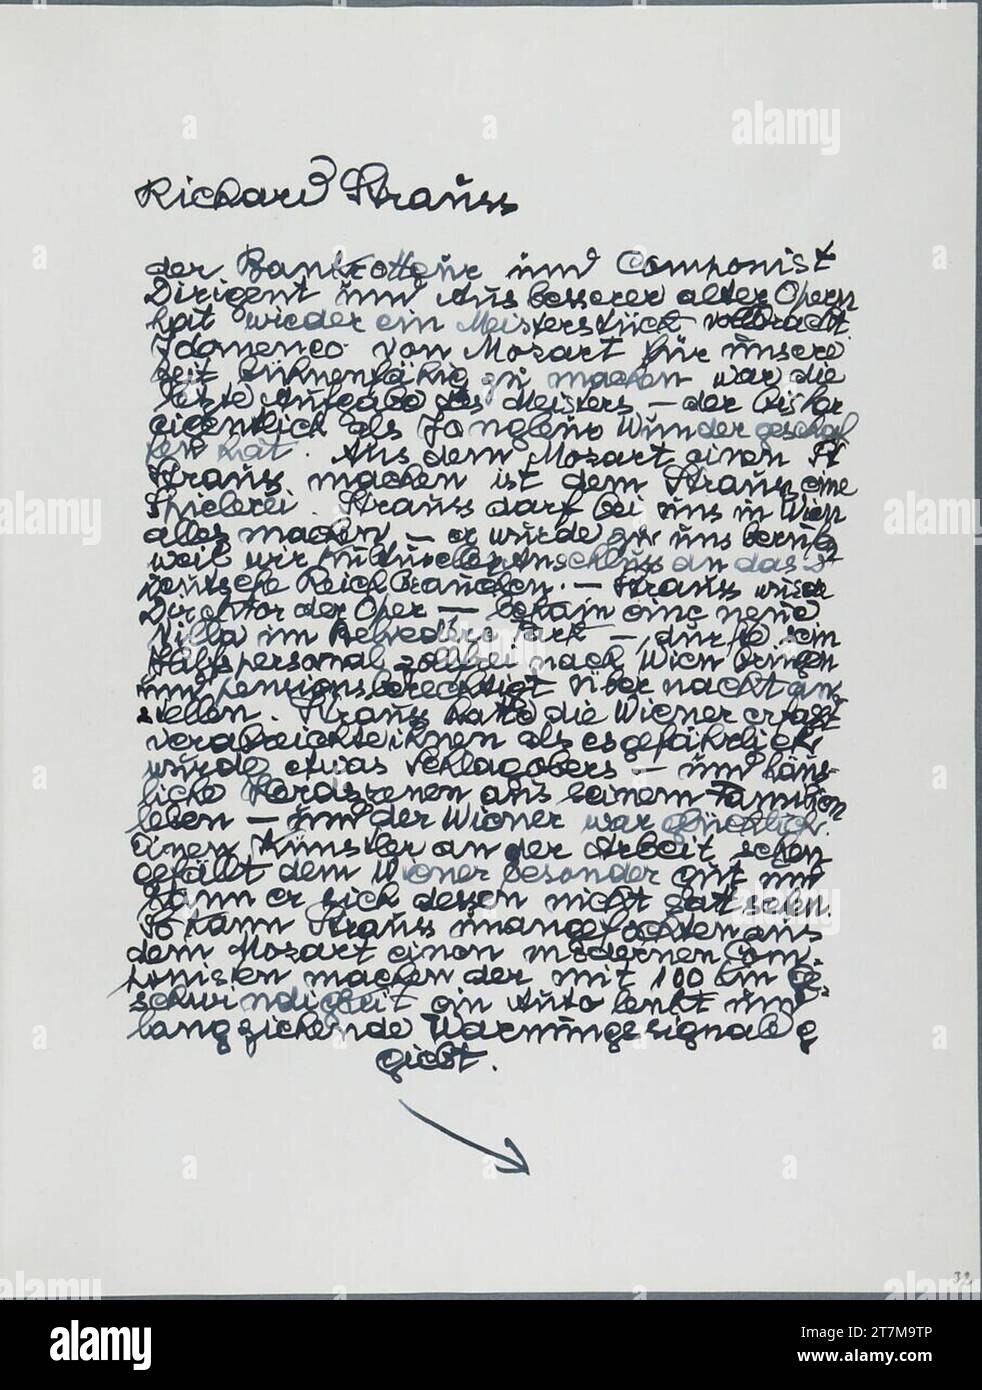 Richard Strauss
der Bankrotteur und Componist
Dirigent und Ausbesserer alter Opern
hat wieder ein Meisterstückt vollbracht.
Idomeneo von Mozart für unsere
Zeit bühnenfähig zu machen war die
letzte Aufgabe des Meisters — der bisher
eigentlich als Jongleur Wunder geschaf
fen hat. Aus dem Mozart einen
Strauss machen ist dem Strauss eine
Spielerei. Strauss darf bei uns in Wien
alles machen — er wurde zu uns berufen
weil wir Anschluss an das
deutsche Reich brauchen. — Strauss wurde
Direktor der Oper — bekam eine neue
Villa im Belvedere Park —, durfte sein
Hilfspersonal zollfrei nach Wien bringen
und pensionsberechtigt über nacht an
stellen. Strauss hatte die Wiener erfasst
verabreichte ihnen als es gefährlich
wurde etwas Schlagobers — und häus-
liche Szenen aus seinem Familien
leben — und der Wiener war glücklich.
Einen Künstler an der Arbeit sehen
gefällt dem Wiener besonder gut und
kann er sich dessen nicht satt sehen.
So kann Strauss unangefochten aus
dem Mozart einen modernen Com-
ponisten machen der mit 100 km Ge-
schwindigkeit ein Auto lenkt und
langziehende Warnungssignale
giebt.
32
alamy
a
alamy
Image ID: 2T7M9TP
www.alamy.com